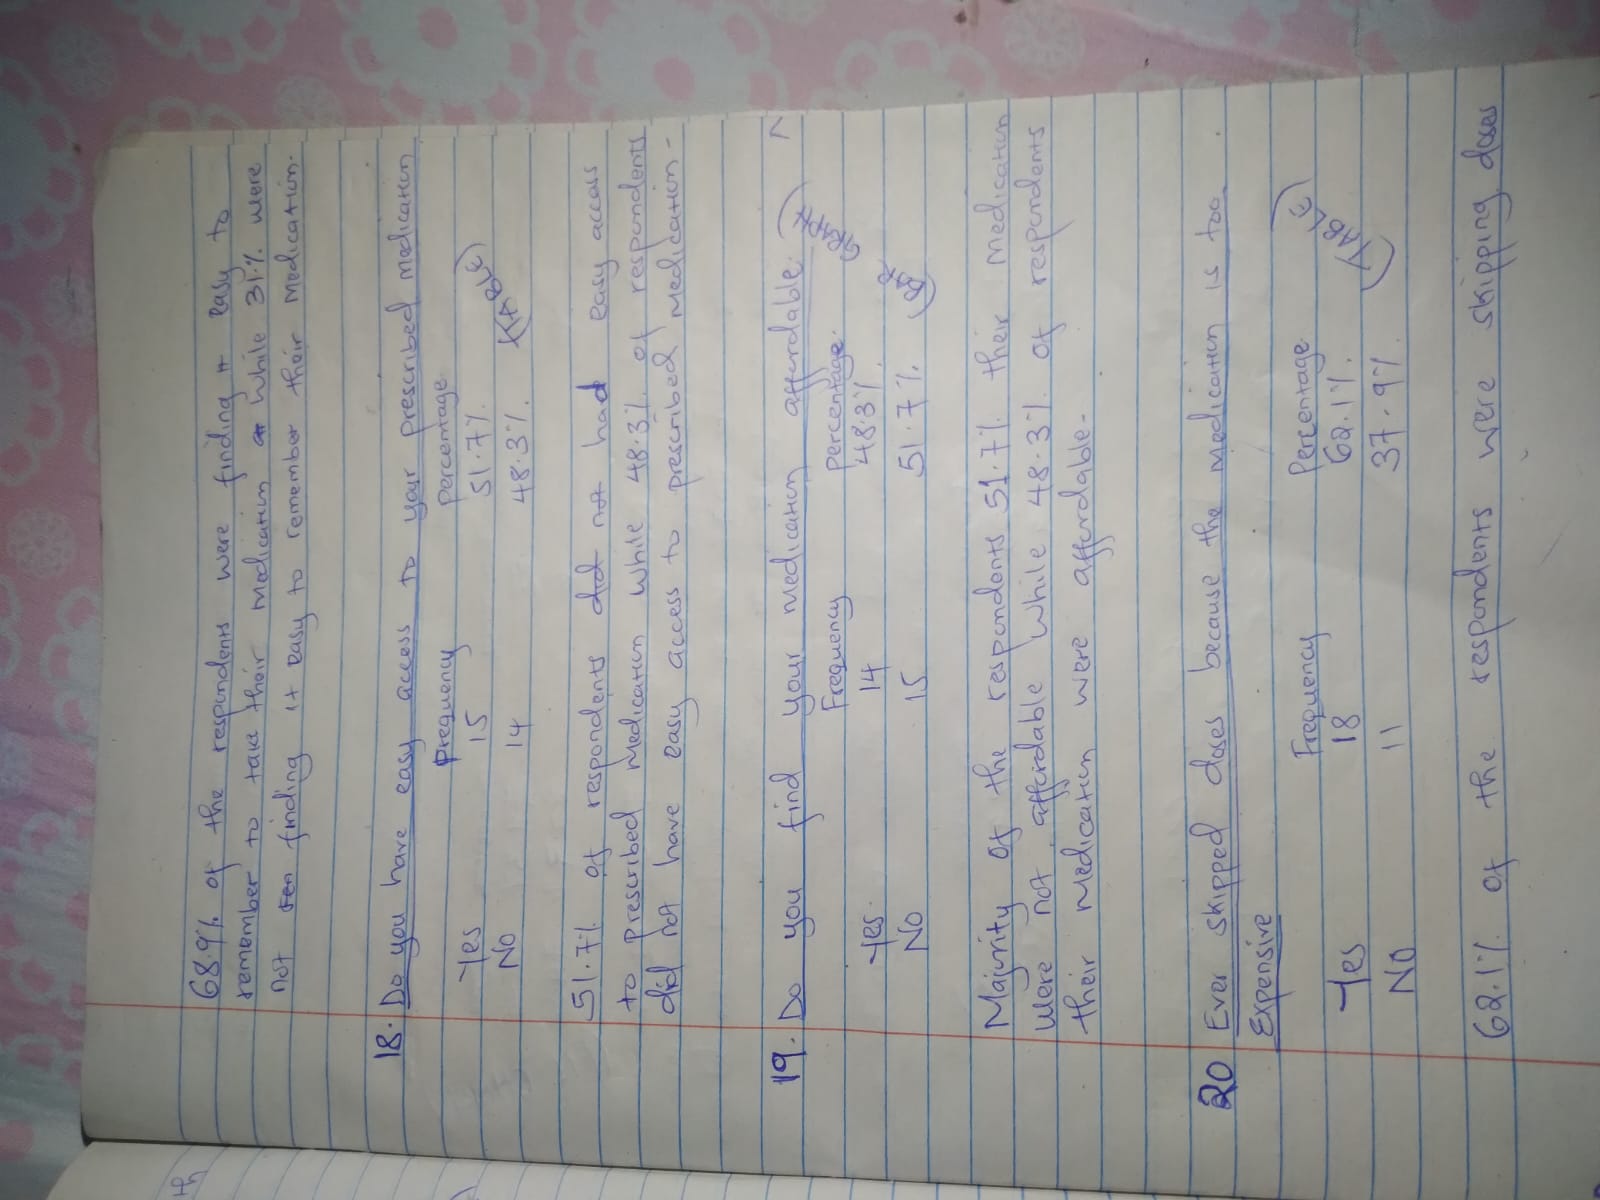 68.9% of the respondents were finding it easy to
remember to take their medication while 31.% were
not finding it easy to remember their medication.
18. Do you have easy access to your prescribed medication
Frequency Percentage
Yes 15 51.7% (TABLE)
No 14 48.3%
51.7% of respondents did not had easy access
to prescribed medication while 48.3% of respondents
did not have easy access to prescribed medication-
19. Do you find your medication affordable.
Frequency Percentage.
Yes. 14 48.3%
No 15 51.7%
Majority of the respondents 51.7% their medication
were not affordable while 48.3% of respondents
their medication were affordable-
20 Ever skipped doses because the medication is too
Expensive
Frequency Percentage
Yes 18 62.1% (TABLE)
No 11 37.9%
62.1% of the respondents were skipping doses
th